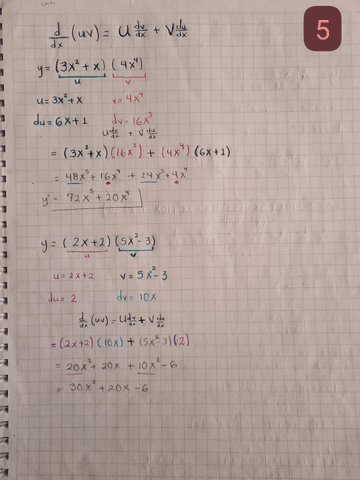 5
d/dx (uv) = U dv/dx + V du/dx
y = (3x² + x) (4x⁴)
u v
u = 3x² + x v = 4x⁴
du = 6x + 1 dv = 16x³
U dv/dx + V du/dx
= (3x² + x) (16x³) + (4x⁴) (6x + 1)
= 48x⁵ + 16x⁴ + 24x⁵ + 4x⁴
y' = 72x⁵ + 20x⁴
y = (2x + 2) (5x² - 3)
u v
u = 2x + 2 v = 5x² - 3
du = 2 dv = 10x
d/dx (uv) = U dv/dx + V du/dx
= (2x + 2) (10x) + (5x² - 3) (2)
= 20x² + 20x + 10x² - 6
= 30x² + 20x - 6